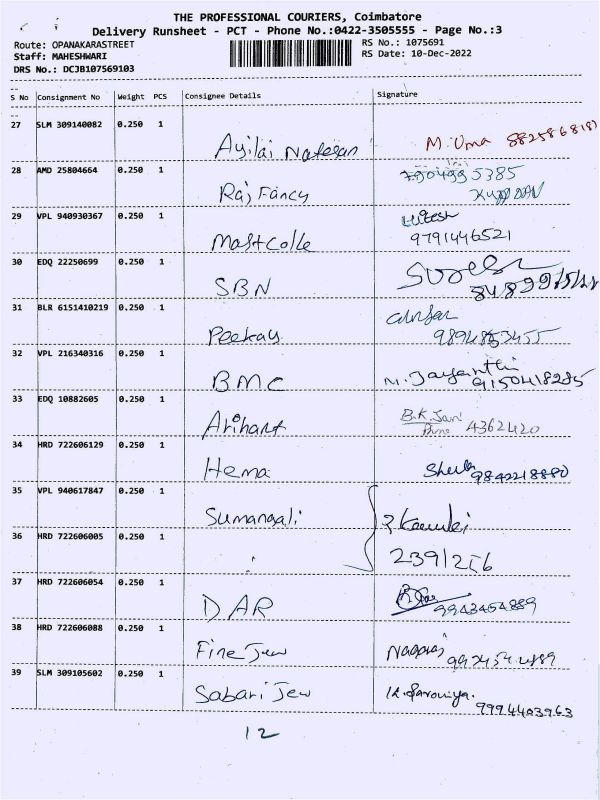 THE PROFESSIONAL COURIERS, Coimbatore
Delivery Runsheet - PCT - Phone No.:0422-3505555 - Page No.:3
Route: OPANAKARASTREET
Staff: MAHESHWARI
DRS No.: DCJB107569103
RS No.: 1075691
RS Date: 10-Dec-2022
S No Consignment No Weight PCS Consignee Details Signature
27 SLM 309140082 0.250 1
Ayilai Natesan M. Uma
28 AMD 25804664 0.250 1
Raj Fancy
29 VPL 940930367 0.250 1
Mastcolle 9791446521
30 EDQ 22250699 0.250 1
SBN
31 BLR 6151410219 0.250 1
Peekay
32 VPL 216340316 0.250 1
BMC M. Jayanthi 9150418285
33 EDQ 10882605 0.250 1
Arihant B.K. Jari 4362420
34 HRD 722606129 0.250 1
Hema 9842218880
35 VPL 940617847 0.250 1
Sumangali
36 HRD 722606005 0.250 1
37 HRD 722606054 0.250 1
DAR 9943454889
38 HRD 722606088 0.250 1
Fine Jew Nagaraj
39 SLM 309105602 0.250 1
Sabari Jew 9994403963
12